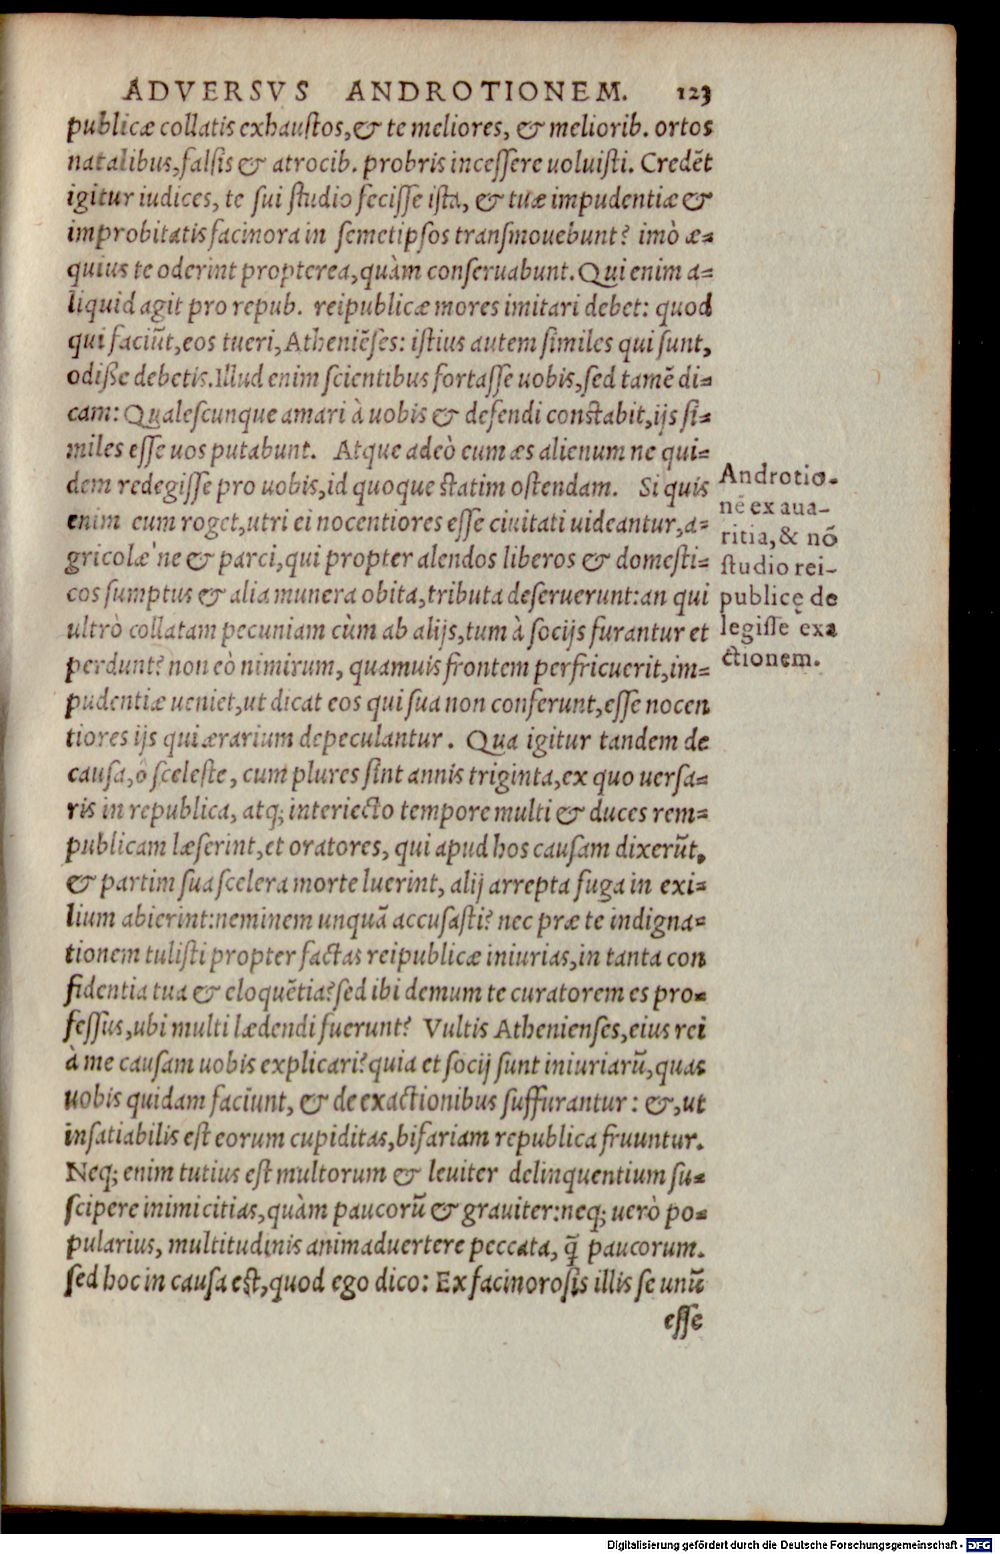 ADVERSVS ANDROTIONEM. 123
publicæ collatis exhaustos, & te meliores, & meliorib. ortos
natalibus, falsis & atrocib. probris incessere uoluisti. Credēt
igitur iudices, te sui studio fecisse ista, & tuæ impudentiæ &
improbitatis facinora in semetipsos transmouebunt? imò æ-
quius te oderint propterea, quàm conseruabunt. Qui enim a-
liquid agit pro repub. reipublicæ mores imitari debet: quod
qui faciūt, eos tueri, Atheniēses: istius autem similes qui sunt,
odiße debetis. Illud enim scientibus fortasse uobis, sed tamē di-
cam: Qualescunque amari à uobis & defendi constabit, ijs si-
miles esse uos putabunt. Atque adeò eum æs alienum ne qui-
dem redegisse pro uobis, id quoque statim ostendam. Si quis
enim eum roget, utri ei nocentiores esse ciuitati uideantur, a-
gricolæ ne & parci, qui propter alendos liberos & domesti-
cos sumptus & alia munera obita, tributa deseruerunt: an qui
ultrò collatam pecuniam cùm ab alijs, tum à socijs furantur et
perdunt? non eò nimirum, quamuis frontem perfricuerit, im-
pudentiæ ueniet, ut dicat eos qui sua non conferunt, esse nocen
tiores ijs qui ærarium depeculantur. Qua igitur tandem de
causa, ô sceleste, cum plures sint annis triginta, ex quo uersa-
ris in republica, atq; interiecto tempore multi & duces rem-
publicam læserint, et oratores, qui apud hos causam dixerūt,
& partim sua scelera morte luerint, alij arrepta fuga in exi-
lium abierint: neminem unquā accusasti? nec præ te indigna-
tionem tulisti propter factas reipublicæ iniurias, in tanta con
fidentia tua & eloquētia? sed ibi demum te curatorem es pro-
fessus, ubi multi lædendi fuerunt? Vultis Athenienses, eius rei
à me causam uobis explicari? quia et socij sunt iniuriarū, quas
uobis quidam faciunt, & de exactionibus suffurantur: &, ut
insatiabilis est eorum cupiditas, bifariam republica fruuntur.
Neq; enim tutius est multorum & leuiter delinquentium su-
scipere inimicitias, quàm paucorū & grauiter: neq; uerò po-
pularius, multitudinis animaduertere peccata, q̄ paucorum.
sed hoc in causa est, quod ego dico: Ex facinorosis illis se unū
esse
Androtio-
nē ex aua-
ritia, & nō
studio rei-
publicę de
legisse exa
ctionem.
Digitalisierung gefördert durch die Deutsche Forschungsgemeinschaft - DFG